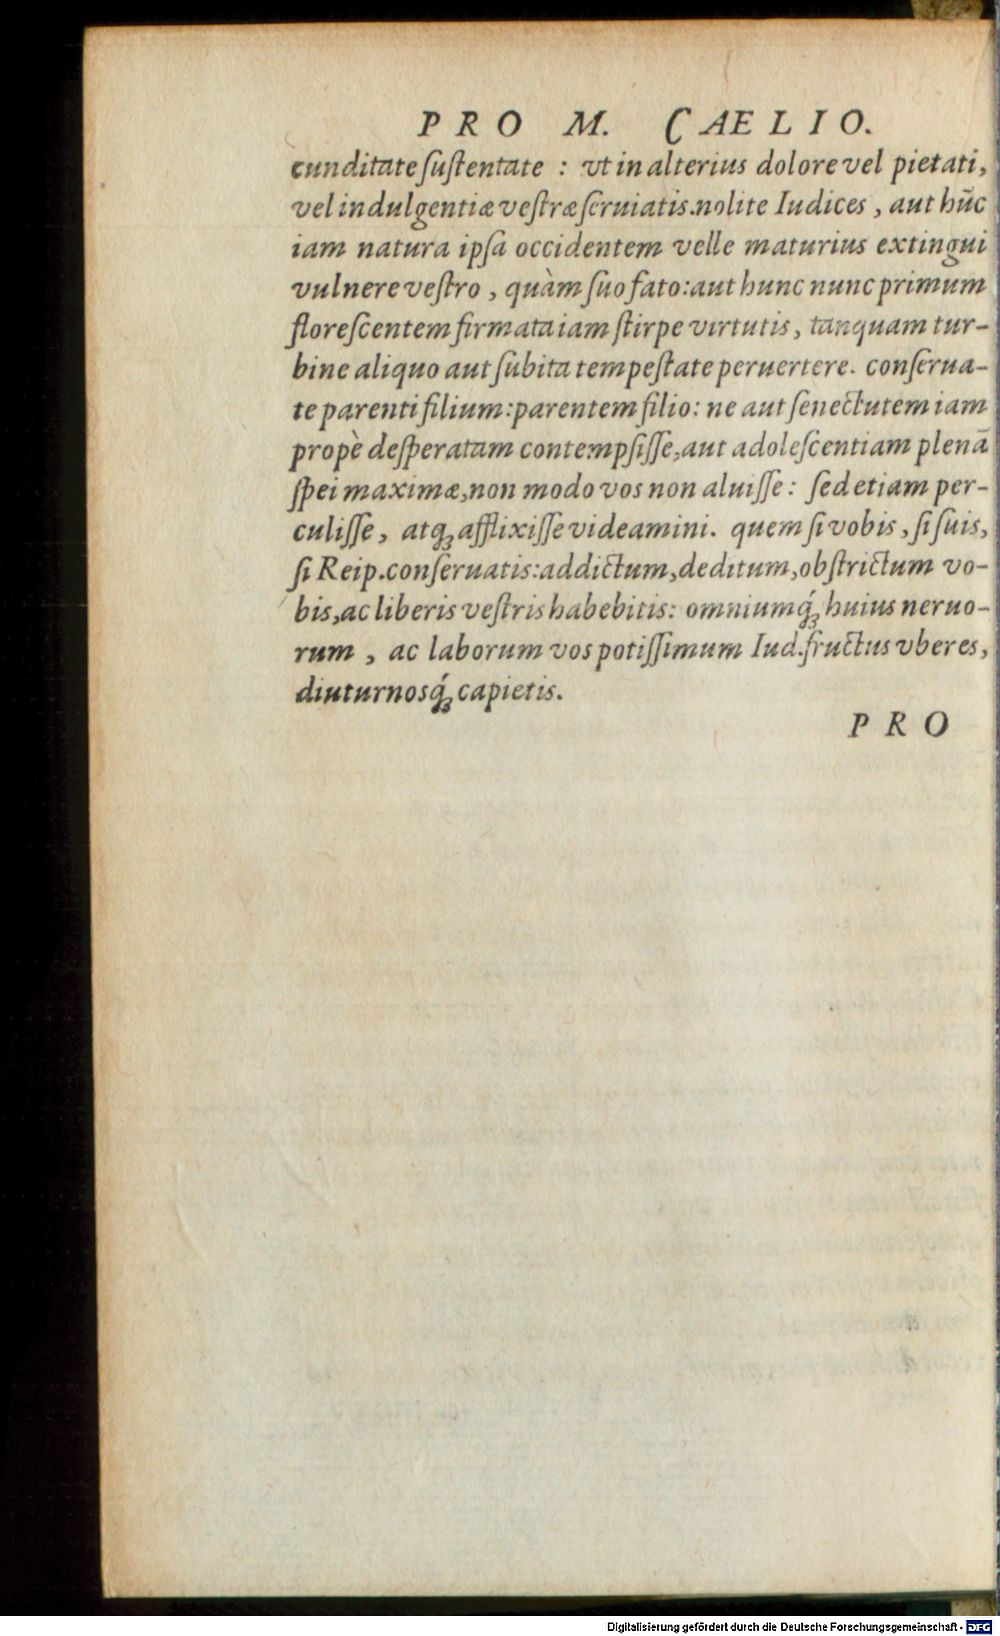 PRO M. CAELIO.
cunditate ſuſtentate : vt in alterius dolore vel pietati,
vel indulgentiæ veſtræ ſeruiatis.nolite Iudices , aut hūc
iam natura ipſa occidentem velle maturius extingui
vulnere veſtro , quàm ſuo fato:aut hunc nunc primum
floreſcentem firmata iam ſtirpe virtutis, tanquam tur-
bine aliquo aut ſubita tempeſtate peruertere. conſerua-
te parenti filium:parentem filio: ne aut ſenectutem iam
propè deſperatam contempſiſſe,aut adoleſcentiam plenā
ſpei maximæ,non modo vos non aluiſſe: ſed etiam per-
culiſſe, atqꝫ afflixiſſe videamini. quem ſi vobis, ſi ſuis,
ſi Reip.conſeruatis:addictum,deditum,obſtrictum vo-
bis,ac liberis veſtris habebitis: omniumq́ꝫ huius neruo-
rum , ac laborum vos potiſſimum Iud.fructus vberes,
diuturnosq́ꝫ capietis.
PRO
Digitalisierung gefördert durch die Deutsche Forschungsgemeinschaft - DFG